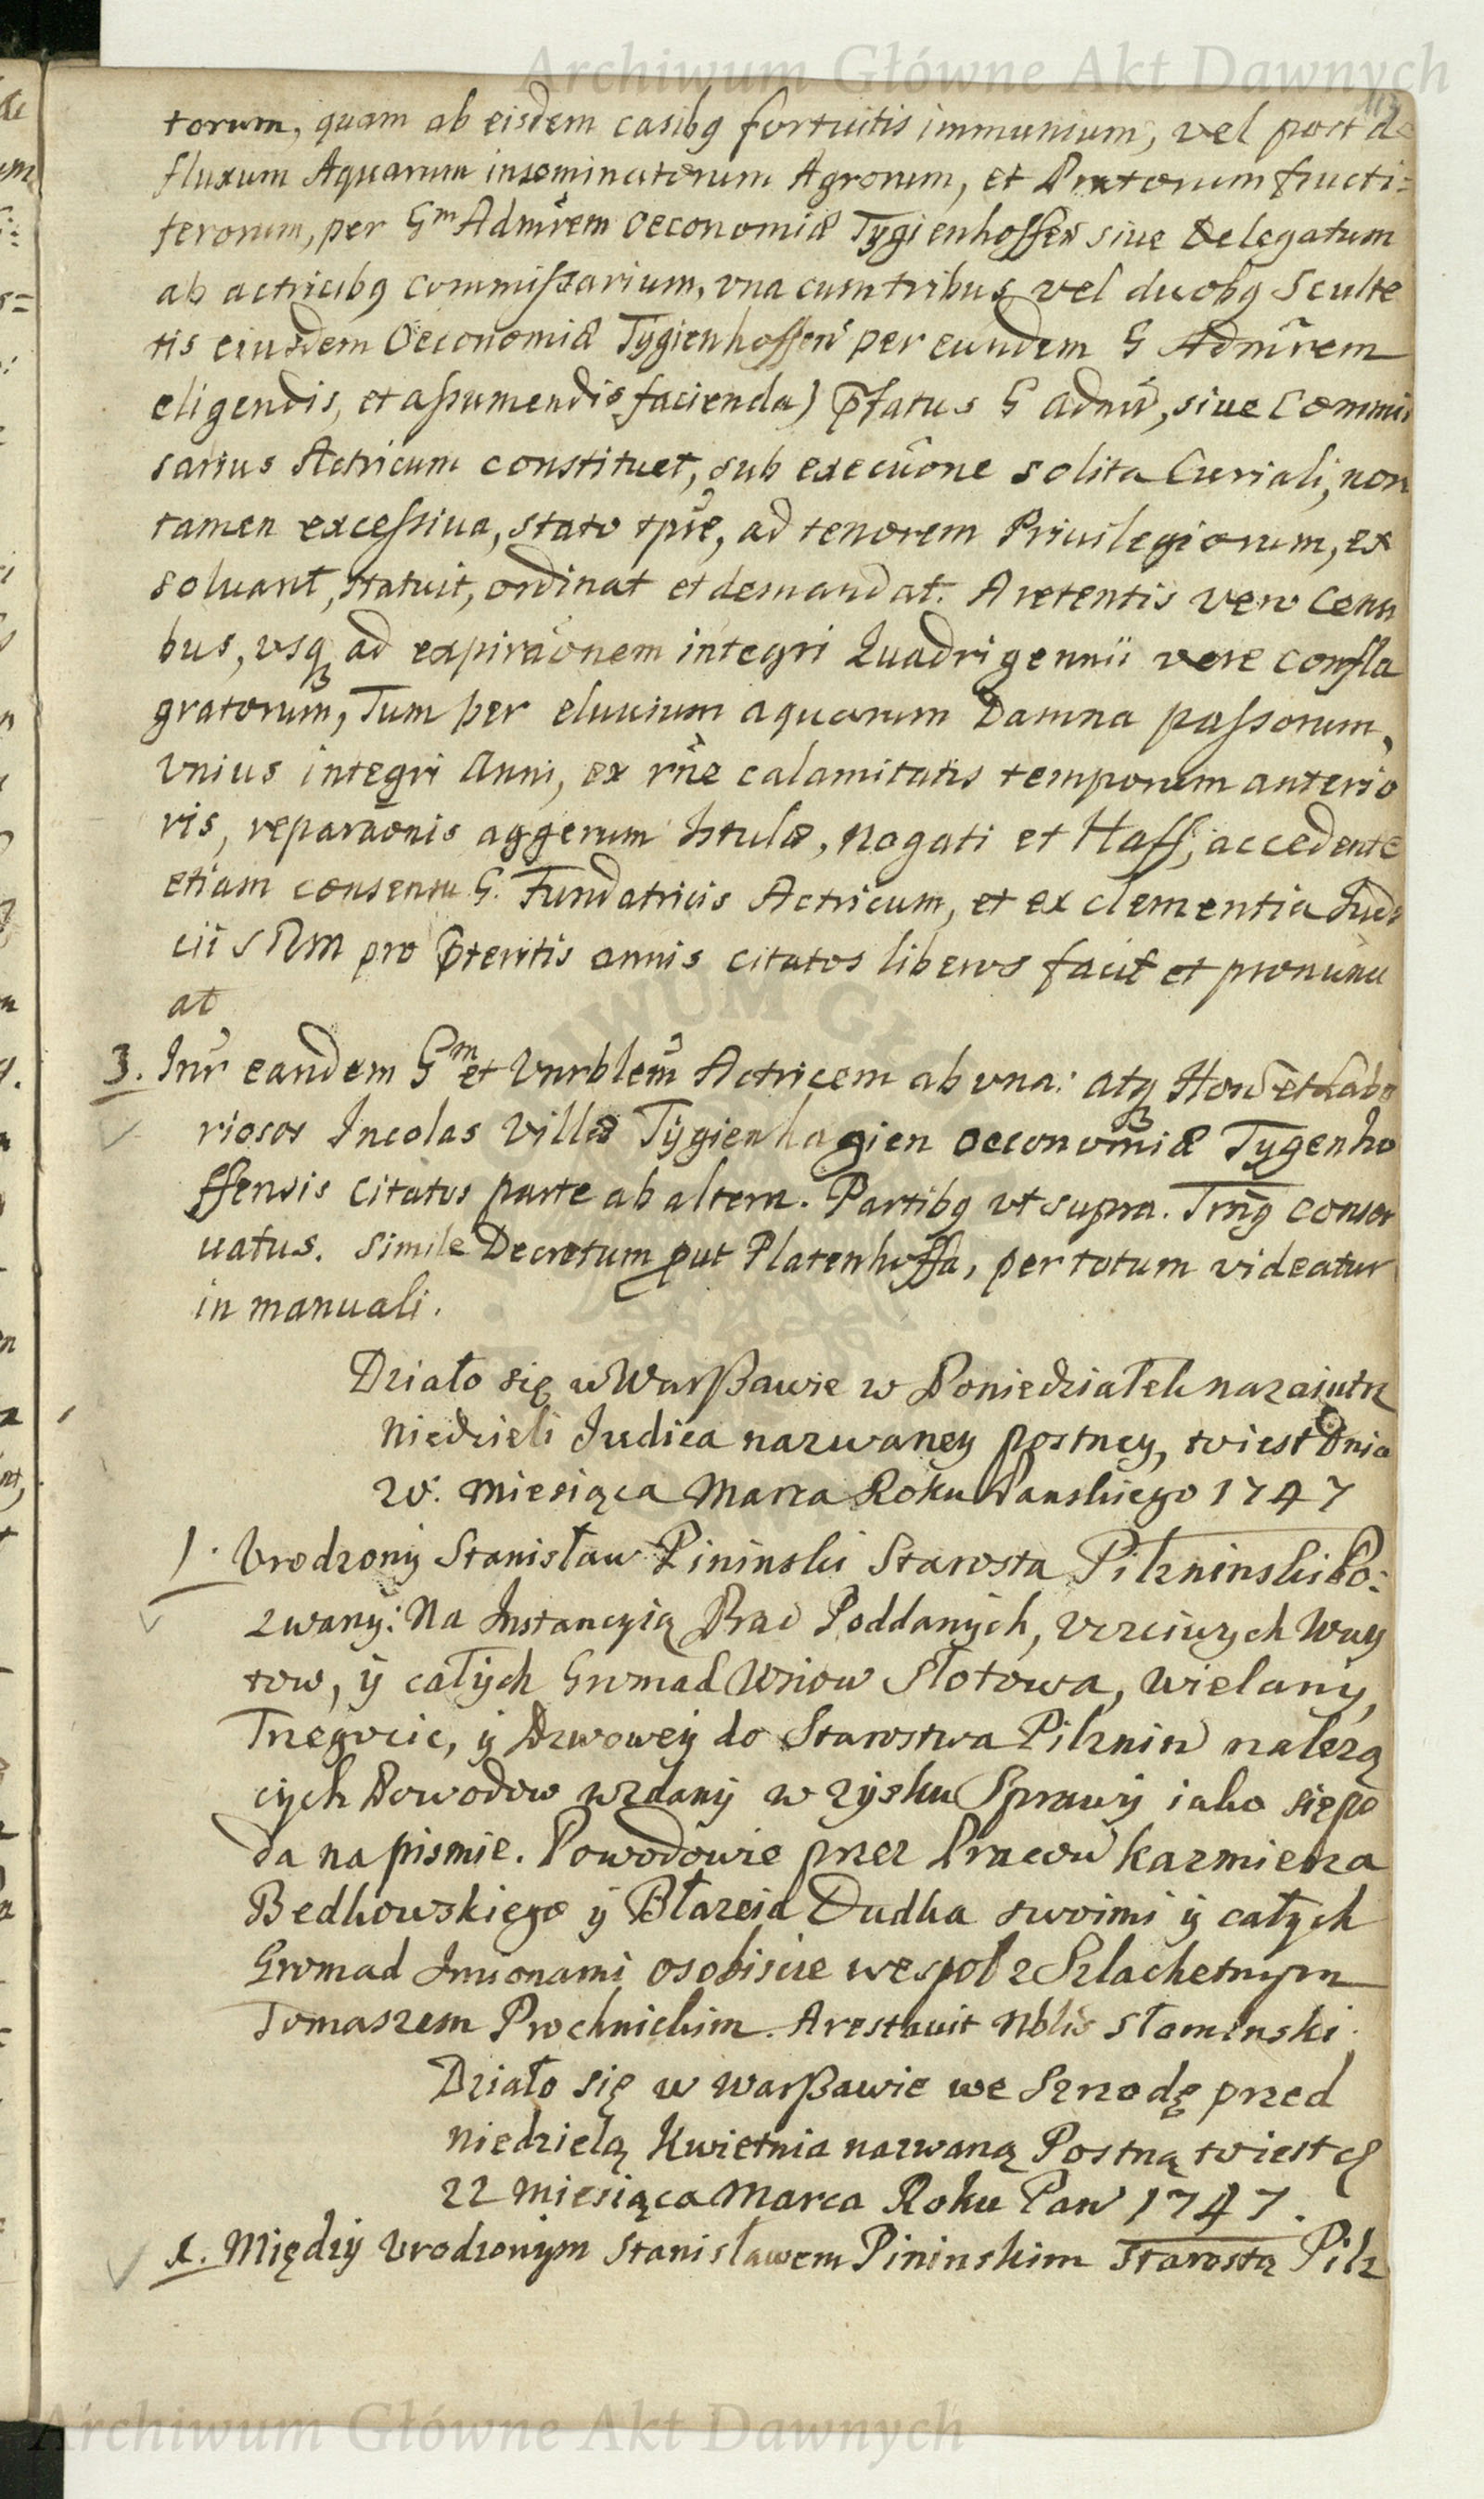 Archiwum Główne Akt Dawnych
torum, quam ab eisdem casibq fortuitis immunium, vel post de
fluxum Aquarum inseminatorum Agrorum, et Pratorum fructi=
ferorum, per Gm Admrem Oeconomiæ Tygienhoffen siue Delegatum
ab actricibq commissarium, vna cum tribus vel duobq Sculte
tis eiusdem Oeconomiæ Tygienhoffen per eundem G Admrem
eligendis, et assumendis facienda) Pfatus G admr, siue Commis
sarius Actricum constituet, sub execuone solita Curiali, non
tamen excessiua, stato tpre, ad tenorem Priuilegiorum, ex
soluant, statuit, ordinat et demandat. A retentis vero Censi
bus, vsq ad expiraonem integri Quadrigennii vere confla
gratorum, Tum per eluuium aquarum Damna passorum,
Vnius integri Anni, ex rne calamitatis temporum anterio
ris, reparaonis aggerum Istulæ, Nogati et Haff, accedente
etiam consensu G. Fundatricis Actricum, et ex clementia Judi
cii SRM pro Pteritis annis citatos liberos facit et pronunci
at
3. Intr eandem Gm et Vnrblem Actricem ab vna: atq Hon et Labo
riosos Incolas Villæ Tygienhagien Oeconomiæ Tygenho
ffensis Citatos parte ab altera. Partibq vt supra. Trnq conser
uatus. Simile Decretum put Platenhoffa, per totum videatur
in manuali.
Działo się w Warßawie w Poniedziałek nazaiutrz
Niedzieli Judica nazwaney postney, to iest Dnia
20. Miesiąca Marca Roku Panskiego 1747
1. Vrodzony Stanisław Pininski Starosta Pilzninski Po:
zwany: Na Instancyią Prac Poddanych, Vczciwych Woy
tow, y całych Gromad Wsiow Słotowa, Wielany,
Trzegocic, y Dzwowey do Starostwa Pilznin należą
cych Powodow wzdany w zysku Sprawy iako się po
da na pismie. Powodowie przez Pracow Kazmierza
Bedkowskiego y Błazeia Dudka swoimi y całych
Gromad Imionami osobiscie wespoł z Szlachetnym
Tomaszem Prochnickim. Arestauit Nblis Słominski.
Działo się w Warßawie we Szrzodę przed
Niedzielą Kwietnia nazwaną Postną to iest d
22 Miesiąca Marca Roku Pan 1747.
1. Między Vrodzonym Stanisławem Pininskim Starostą Pilz
Archiwum Główne Akt Dawnych